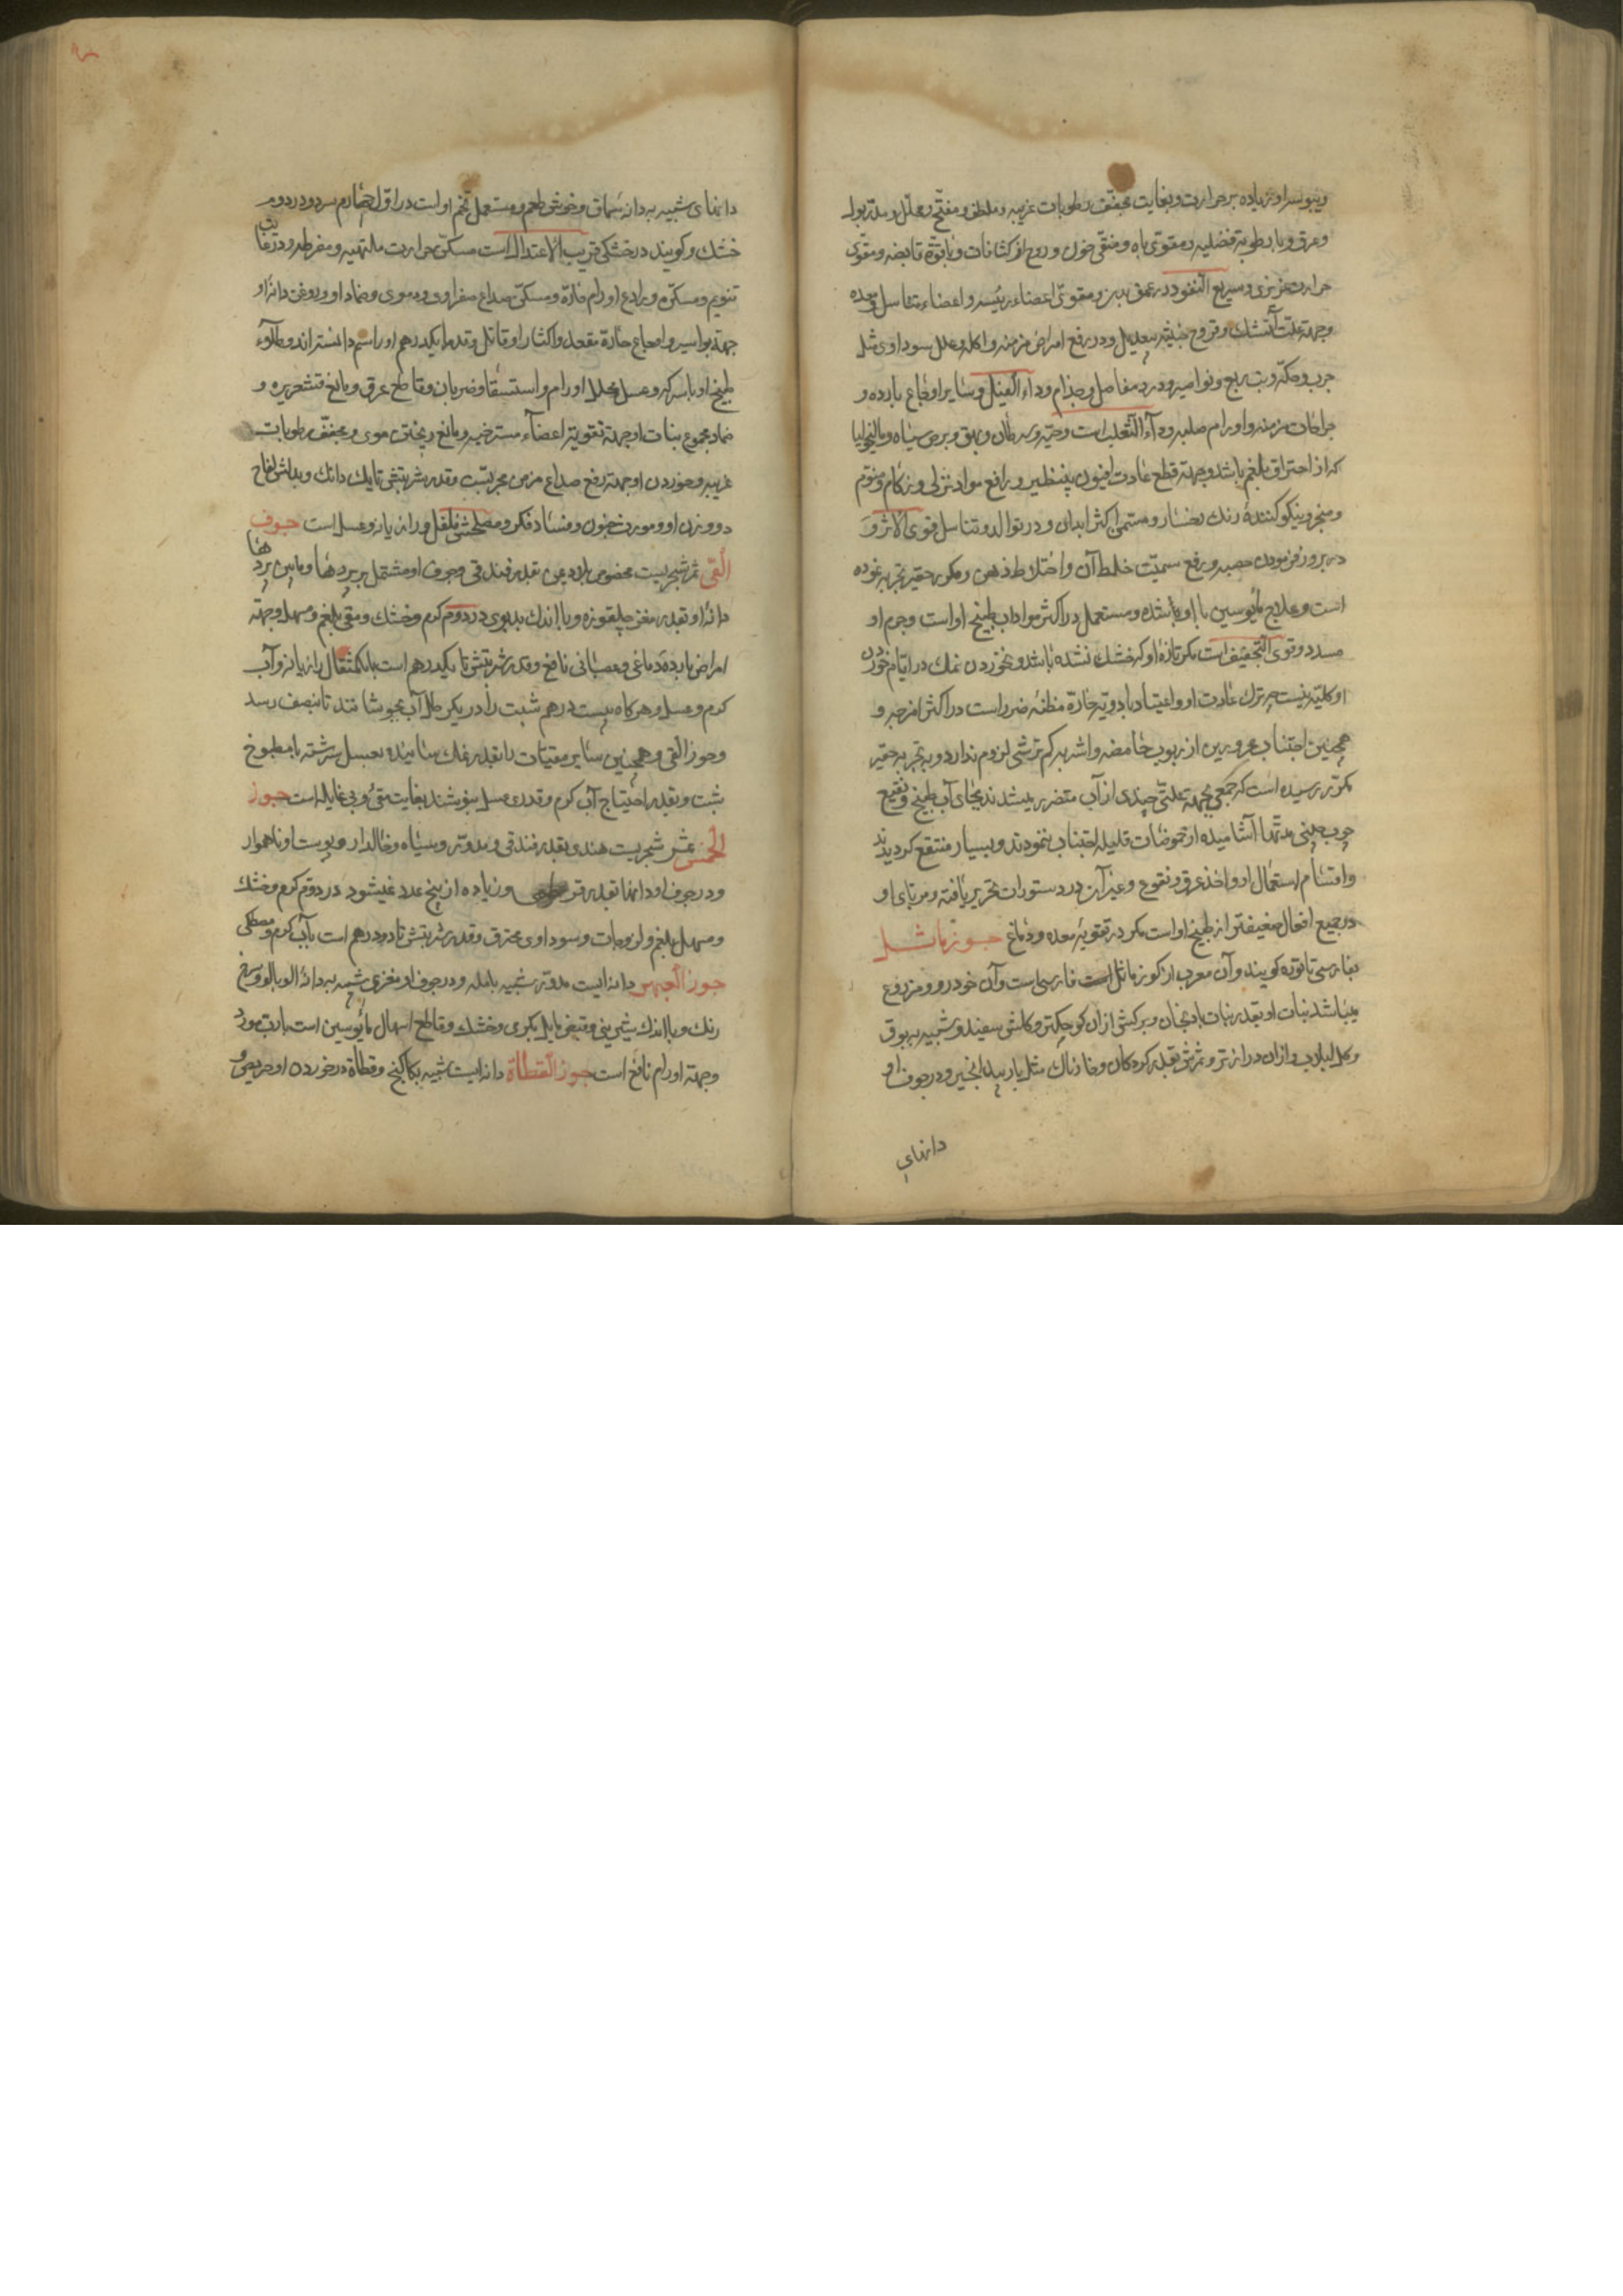 ویبوسة او زیاده بر حرارت و بغایت مجفف رطوبات غریبه و ملطف و مفتح و محلل و مدر بول
و عرق و با رطوبة فضلیه و مقوی باه و منقی خون و روح از کثافات و با قوة قابضه و مقوی
حرارت غریزی و سریع النفوذ در عمق بدن و مقوی اعضاء رئیسه و اعضاء تناسل و معده
وجهة علت آتشک و قروح خبیثه بیعدیل و در رفع امراض مزمنه و اکله و علل سوداوی مثل
جرب و حکه و تب ربع و نواصیر و درد مفاصل و جذام و داء الفیل و سایر اوجاع بارده و
جراحات مزمنه و اورام صلبه و داء الثعلب است و حیه و سرطان و بهق و برص سیاه و مالیخولیا
که از احتراق بلغم باشد و جهة قطع عادت افیون بینظیر و رافع مواد نزلی و زکام و منوم
و منجر و نیکو کنندهٔ رنک رخسار و مسمی اکثر ابدان و در توالد و تناسل قوی الاثر و
در بروز فرمودن حصبه و رفع سمیت خلط آن و اختلاط ذهن و مکرر حقیر تجربه نموده
است و علاج مأیوسین با او باشده و مستعمل در اکثر مواد اب طبیخ او است و جرم او
مسدد و قوی التجفیف است مکر تازه او که خشک نشده باشد و نخوردن نمک در ایام خوردن
او کلیه نیست چه ترک عادت او و اعتیاد بادویهٔ حاره مظنهٔ ضرر است در اکثر امزجه و
همچنین اجتناب محرورین از ربوب حامضه و اشربه کم ترشی لزوم ندارد و بتجربه حقیر
مکرر رسیده است که جمعی بجهة علتی چندی از آب متضرر میشدند بجای آب طبیخ و نقیع
چوب چینی مدتها آشامیده از حموضات قلیله اجتناب ننمودند و بسیار منتفع کردیدند
و اقسام استعمال او و اخذ عرق و نقوع و غیر آن در دستورات تحریر یافته و مربای او
در جمیع افعال ضعیفتر از طبیخ او است مکر در تقویهٔ معده و دماغ جوز ماثل
بفارسی تاتوره کویند و آن معرب از کوز ماثل است فارسی است و آن خودرو و مزروع
میباشد نبات او بقدر نبات بادنجان و برکش از آن کوچکتر و کلش سفید و شبیه ببوق
و کل لبلاب و از آن دراز تر و ثمرش بقدر کردکان و خارناک مثل بار بید انجیر و در جوف او
دانهای
دانهای شبیه به دانه سماق و خوش طعم و مستعمل تخم او است در اول چهارم سرد و در دوم
خشک و کویند در خشکی قریب الاعتدال است مسکن حرارت ملتهبه و مفرطه و در غایت
تنویم و مسکر و رادع اورام حاره و مسکن صداع صفراوی و دموی و ضماد او و روغن دانهٔ او
جهة بواسیر و اوجاع حارهٔ مقعد و اکثار او قاتل و قدر یکدرهم او را سم دانسته‌اند و طلاء
طبیخ او با سرکه و عسل محلل اورام و استسقا و ضربان و قاطع عرق و مانع قشعریره و
ضماد مجموع نبات او جهة تقویة اعضاء مسترخیه و مانع ریختن موی و مجفف رطوبات
غریبه و خوردن او جهة رفع صداع مزمن مجربست و قدر شربتش تا یک دانک و بدلش لفاح
دو وزن او و مورث جنون و فساد فکر و مصلحش فلفل و رازیانه و عسل است جوز
القی ثمر شجریست مخصوص بلاد یمن بقدر فندقی و جوف او مشتمل بر پردها و مابین پردها
دانهٔ او بقدر مغز چلغوزه و با اندک بدبوی در دوم کرم و خشک و مقی بلغم و مسهل و جهة
امراض باردهٔ دماغی و عصبانی نافع و قدر شربتش تا یکدرهم است با یکمثقال رازیانه و آب
کرم و عسل و هرکاه بیست درهم شبت را در یکرطل آب بجوشانند تا بنصف رسد
و جوز القی و همچنین سایر مقیئات را بقدر نمک سائیده بعسل سرشته با مطبوخ
شبت و بقدر احتیاج آب کرم و قدری عسل بنوشند بغایت مقئ و بی غایله است جوز
الخمس ثمر شجریست هندی بقدر فندقی و مدور و سیاه و خالدار و پوست او ناهموار
و در جوف او دانها بقدر قرطمی و زیاده از پنج عدد نمیشود در دوم کرم و خشک
و مسهل بلغم و لزوجات و سوداوی محترق و قدر شربتش تا دو درهم است بآب کرم و مصطکی
جوز العبهر دانه‌ایست مدور شبیه بامله و در جوف او مغزی شبیه به دانهٔ الوبالو و سرخ
رنک و با اندک شیرینی و قبض مایل بکرمی و خشک و قاطع اسهال مأیوسین است با رب مورد
و جهة اورام نافع است جوز القطاة دانه‌ایست شبیه بکاکنج و قطاة در خوردن او حریص و